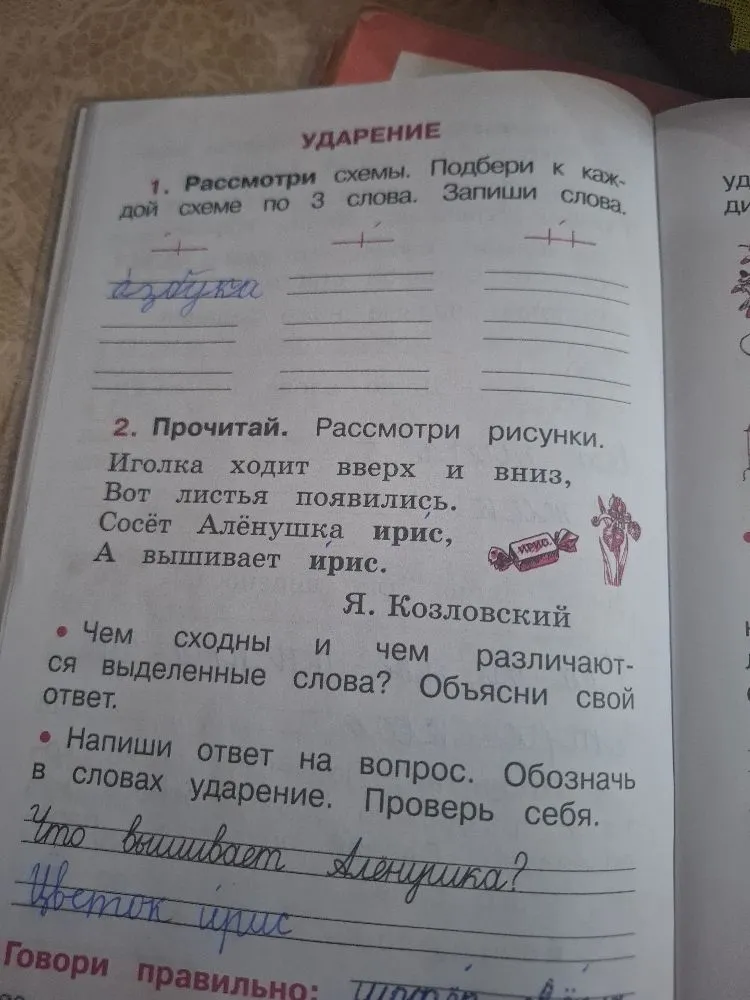 УДАРЕНИЕ
1. Рассмотри схемы. Подбери к каж-
дой схеме по 3 слова. Запиши слова.
азбука
2. Прочитай. Рассмотри рисунки.
Иголка ходит вверх и вниз,
Вот листья появились.
Сосёт Алёнушка ири́с,
А вышивает и́рис.
ИРИС
Я. Козловский
• Чем сходны и чем различают-
ся выделенные слова? Объясни свой
ответ.
• Напиши ответ на вопрос. Обозначь
в словах ударение. Проверь себя.
Что вышивает Алёнушка?
Цветок и́рис
Говори правильно:
уд
ди